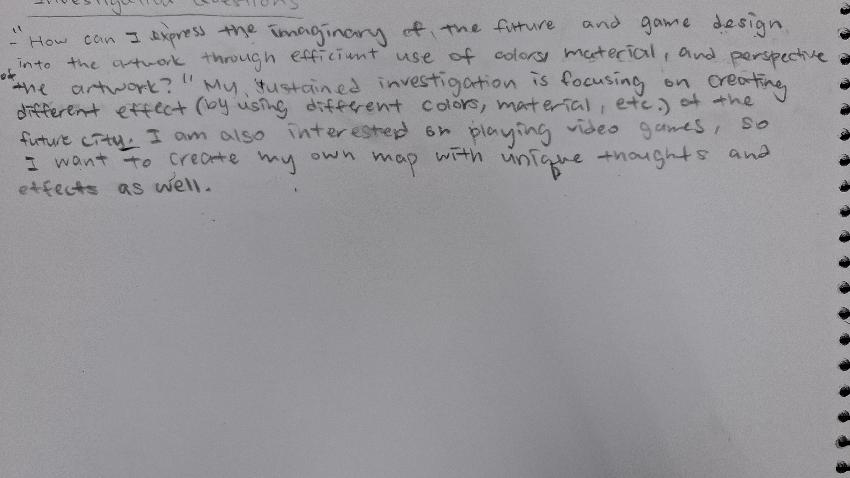 Investigation Questions
- "How can I express the imaginary of the future and game design
into the artwork through efficient use of colors, material, and perspective
of the artwork?" My sustained investigation is focusing on creating
different effect (by using different colors, material, etc.) of the
future city. I am also interested on playing video games, so
I want to create my own map with unique thoughts and
effects as well.